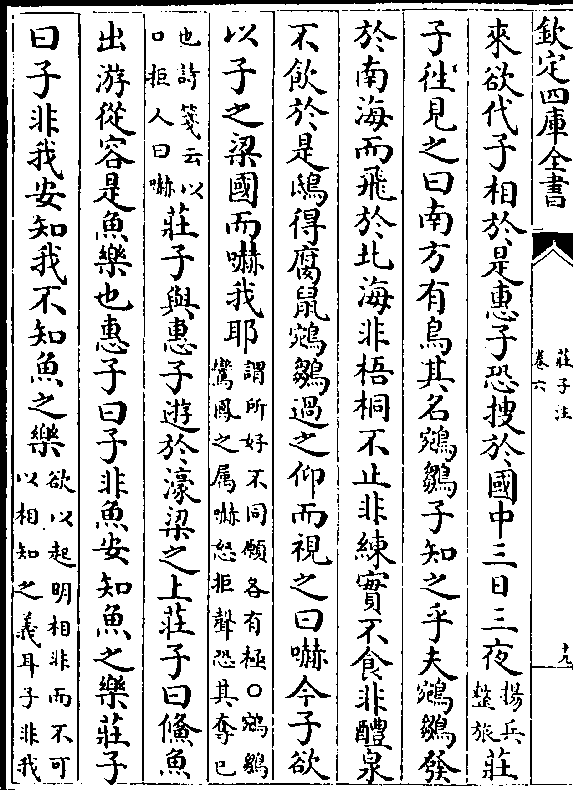 欽定四庫全書
莊子注
卷六
十九
來欲代子相於是惠子恐搜於國中三日三夜揚兵整旅莊
子徃見之曰南方有鳥其名鵷鶵子知之乎夫鵷鶵發
於南海而飛於北海非梧桐不止非練實不食非醴泉
不飲於是鴟得腐鼠鵷鶵過之仰而視之曰嚇今子欲
以子之梁國而嚇我耶謂所好不同願各有極○鵷鶵鸞鳳之属嚇怒拒聲恐其奪已
也詩箋云以口拒人曰嚇莊子與惠子遊於濠梁之上莊子曰鯈魚
出游從容是魚樂也惠子曰子非魚安知魚之樂莊子
曰子非我安知我不知魚之樂欲以起明相非而不可以相知之義耳子非我